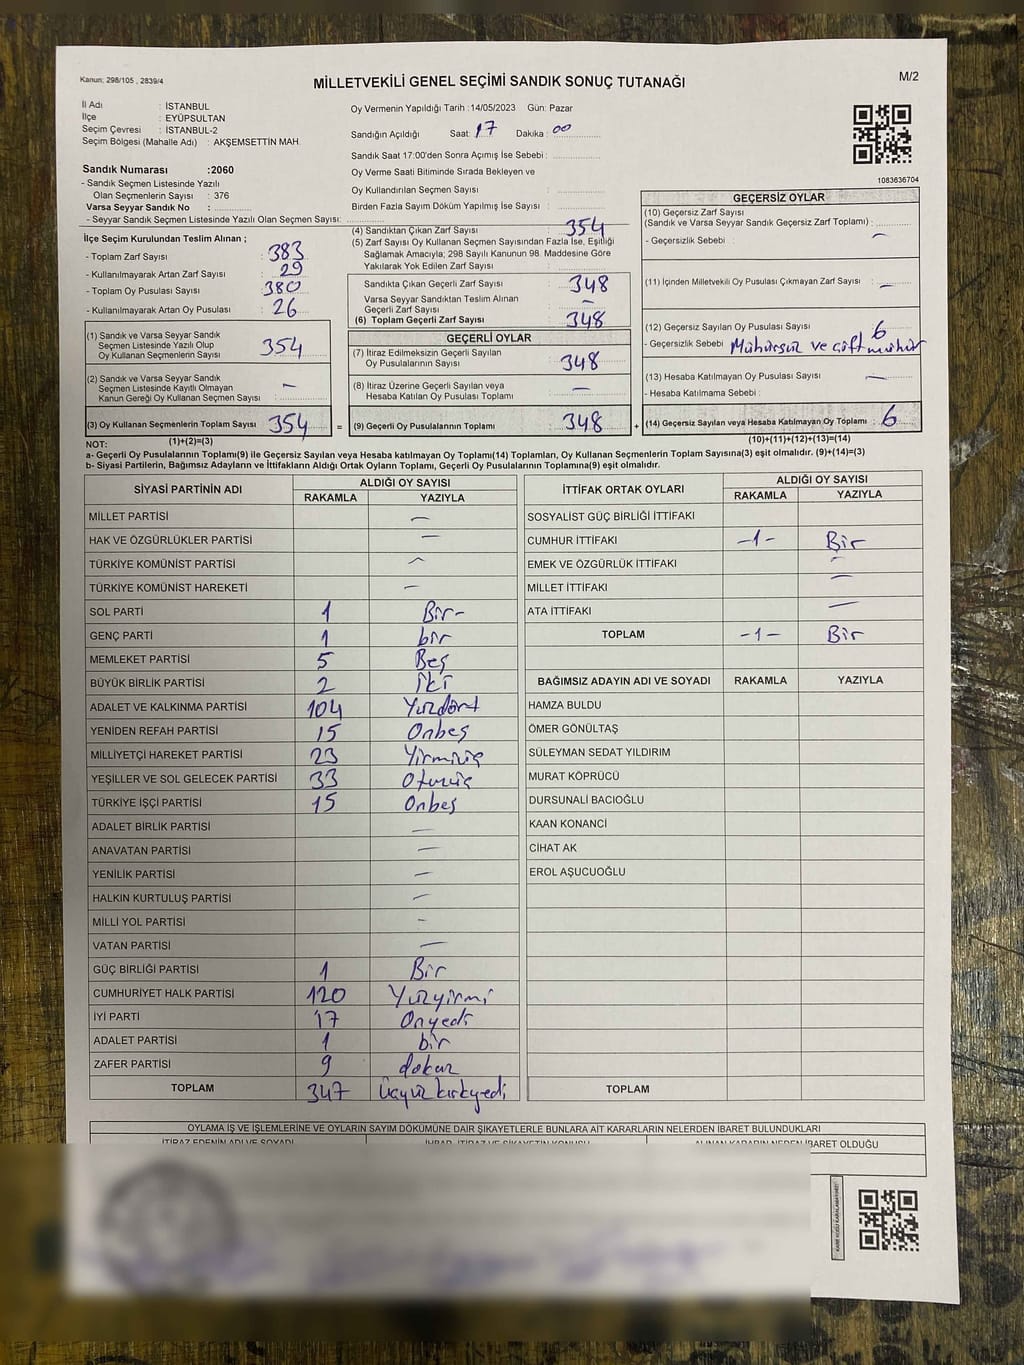 Kanun: 298/105 , 2839/4
MİLLETVEKİLİ GENEL SEÇİMİ SANDIK SONUÇ TUTANAĞI
M/2
İl Adı : İSTANBUL
İlçe : EYÜPSULTAN
Seçim Çevresi : İSTANBUL-2
Seçim Bölgesi (Mahalle Adı) : AKŞEMSETTİN MAH.
Sandık Numarası :2060
- Sandık Seçmen Listesinde Yazılı
Olan Seçmenlerin Sayısı : 376
Varsa Seyyar Sandık No :
- Seyyar Sandık Seçmen Listesinde Yazılı Olan Seçmen Sayısı:
Oy Vermenin Yapıldığı Tarih :14/05/2023 Gün: Pazar
Sandığın Açıldığı Saat: 17 Dakika : 00
Sandık Saat 17:00'den Sonra Açımış İse Sebebi :
Oy Verme Saati Bitiminde Sırada Bekleyen ve
Oy Kullandırılan Seçmen Sayısı :
Birden Fazla Sayım Döküm Yapılmış İse Sayısı :
1083636704
İlçe Seçim Kurulundan Teslim Alınan ;
- Toplam Zarf Sayısı : 383
- Kullanılmayarak Artan Zarf Sayısı : 29
- Toplam Oy Pusulası Sayısı : 380
- Kullanılmayarak Artan Oy Pusulası : 26
(1) Sandık ve Varsa Seyyar Sandık
Seçmen Listesinde Yazılı Olup
Oy Kullanan Seçmenlerin Sayısı : 354
(2) Sandık ve Varsa Seyyar Sandık
Seçmen Listesinde Kayıtlı Olmayan
Kanun Gereği Oy Kullanan Seçmen Sayısı : –
(3) Oy Kullanan Seçmenlerin Toplam Sayısı 354 =
(4) Sandıktan Çıkan Zarf Sayısı : 354
(5) Zarf Sayısı Oy Kullanan Seçmen Sayısından Fazla İse, Eşitliği
Sağlamak Amacıyla; 298 Sayılı Kanunun 98. Maddesine Göre
Yakılarak Yok Edilen Zarf Sayısı :
Sandıkta Çıkan Geçerli Zarf Sayısı : 348
Varsa Seyyar Sandıktan Teslim Alınan
Geçerli Zarf Sayısı : –
(6) Toplam Geçerli Zarf Sayısı : 348
GEÇERLİ OYLAR
(7) İtiraz Edilmeksizin Geçerli Sayılan
Oy Pusulalarının Sayısı : 348
(8) İtiraz Üzerine Geçerli Sayılan veya
Hesaba Katılan Oy Pusulası Toplamı : –
(9) Geçerli Oy Pusulalarının Toplamı : 348 +
GEÇERSİZ OYLAR
(10) Geçersiz Zarf Sayısı
(Sandık ve Varsa Seyyar Sandık Geçersiz Zarf Toplamı) :
- Geçersizlik Sebebi : –
(11) İçinden Milletvekili Oy Pusulası Çıkmayan Zarf Sayısı : –
(12) Geçersiz Sayılan Oy Pusulası Sayısı : 6
- Geçersizlik Sebebi : Mühürsüz ve çift mühür
(13) Hesaba Katılmayan Oy Pusulası Sayısı : –
- Hesaba Katılmama Sebebi :
(14) Geçersiz Sayılan veya Hesaba Katılmayan Oy Toplamı : 6
NOT: (1)+(2)=(3) (10)+(11)+(12)+(13)=(14)
a- Geçerli Oy Pusulalarının Toplamı(9) ile Geçersiz Sayılan veya Hesaba katılmayan Oy Toplamı(14) Toplamları, Oy Kullanan Seçmenlerin Toplam Sayısına(3) eşit olmalıdır. (9)+(14)=(3)
b- Siyasi Partilerin, Bağımsız Adayların ve İttifakların Aldığı Ortak Oyların Toplamı, Geçerli Oy Pusulalarının Toplamına(9) eşit olmalıdır.
SİYASİ PARTİNİN ADI ALDIĞI OY SAYISI
RAKAMLA YAZIYLA
MİLLET PARTİSİ –
HAK VE ÖZGÜRLÜKLER PARTİSİ –
TÜRKİYE KOMÜNİST PARTİSİ –
TÜRKİYE KOMÜNİST HAREKETİ –
SOL PARTİ 1 Bir-
GENÇ PARTİ 1 bir
MEMLEKET PARTİSİ 5 Beş
BÜYÜK BİRLİK PARTİSİ 2 iki
ADALET VE KALKINMA PARTİSİ 104 Yüzdört
YENİDEN REFAH PARTİSİ 15 Onbeş
MİLLİYETÇİ HAREKET PARTİSİ 23 Yirmiüç
YEŞİLLER VE SOL GELECEK PARTİSİ 33 Otuzüç
TÜRKİYE İŞÇİ PARTİSİ 15 Onbeş
ADALET BİRLİK PARTİSİ –
ANAVATAN PARTİSİ –
YENİLİK PARTİSİ –
HALKIN KURTULUŞ PARTİSİ –
MİLLİ YOL PARTİSİ -
VATAN PARTİSİ –
GÜÇ BİRLİĞİ PARTİSİ 1 Bir
CUMHURİYET HALK PARTİSİ 120 Yüzyirmi
İYİ PARTİ 17 Onyedi
ADALET PARTİSİ 1 bir
ZAFER PARTİSİ 9 dokuz
TOPLAM 347 Üçyüzkırkyedi
İTTİFAK ORTAK OYLARI ALDIĞI OY SAYISI
RAKAMLA YAZIYLA
SOSYALİST GÜÇ BİRLİĞİ İTTİFAKI
CUMHUR İTTİFAKI -1- Bir
EMEK VE ÖZGÜRLÜK İTTİFAKI –
MİLLET İTTİFAKI –
ATA İTTİFAKI –
TOPLAM -1- Bir
BAĞIMSIZ ADAYIN ADI VE SOYADI RAKAMLA YAZIYLA
HAMZA BULDU
ÖMER GÖNÜLTAŞ
SÜLEYMAN SEDAT YILDIRIM
MURAT KÖPRÜCÜ
DURSUNALİ BACIOĞLU
KAAN KONANCİ
CİHAT AK
EROL AŞUCUOĞLU
TOPLAM
OYLAMA İŞ VE İŞLEMLERİNE VE OYLARIN SAYIM DÖKÜMÜNE DAİR ŞİKAYETLERLE BUNLARA AİT KARARLARIN NELERDEN İBARET BULUNDUKLARI
İTİRAZ EDENİN ADI VE SOYADI İHBAR, İTİRAZ VE ŞİKAYETİN KONUSU ALINAN KARARIN NEDEN İBARET OLDUĞU